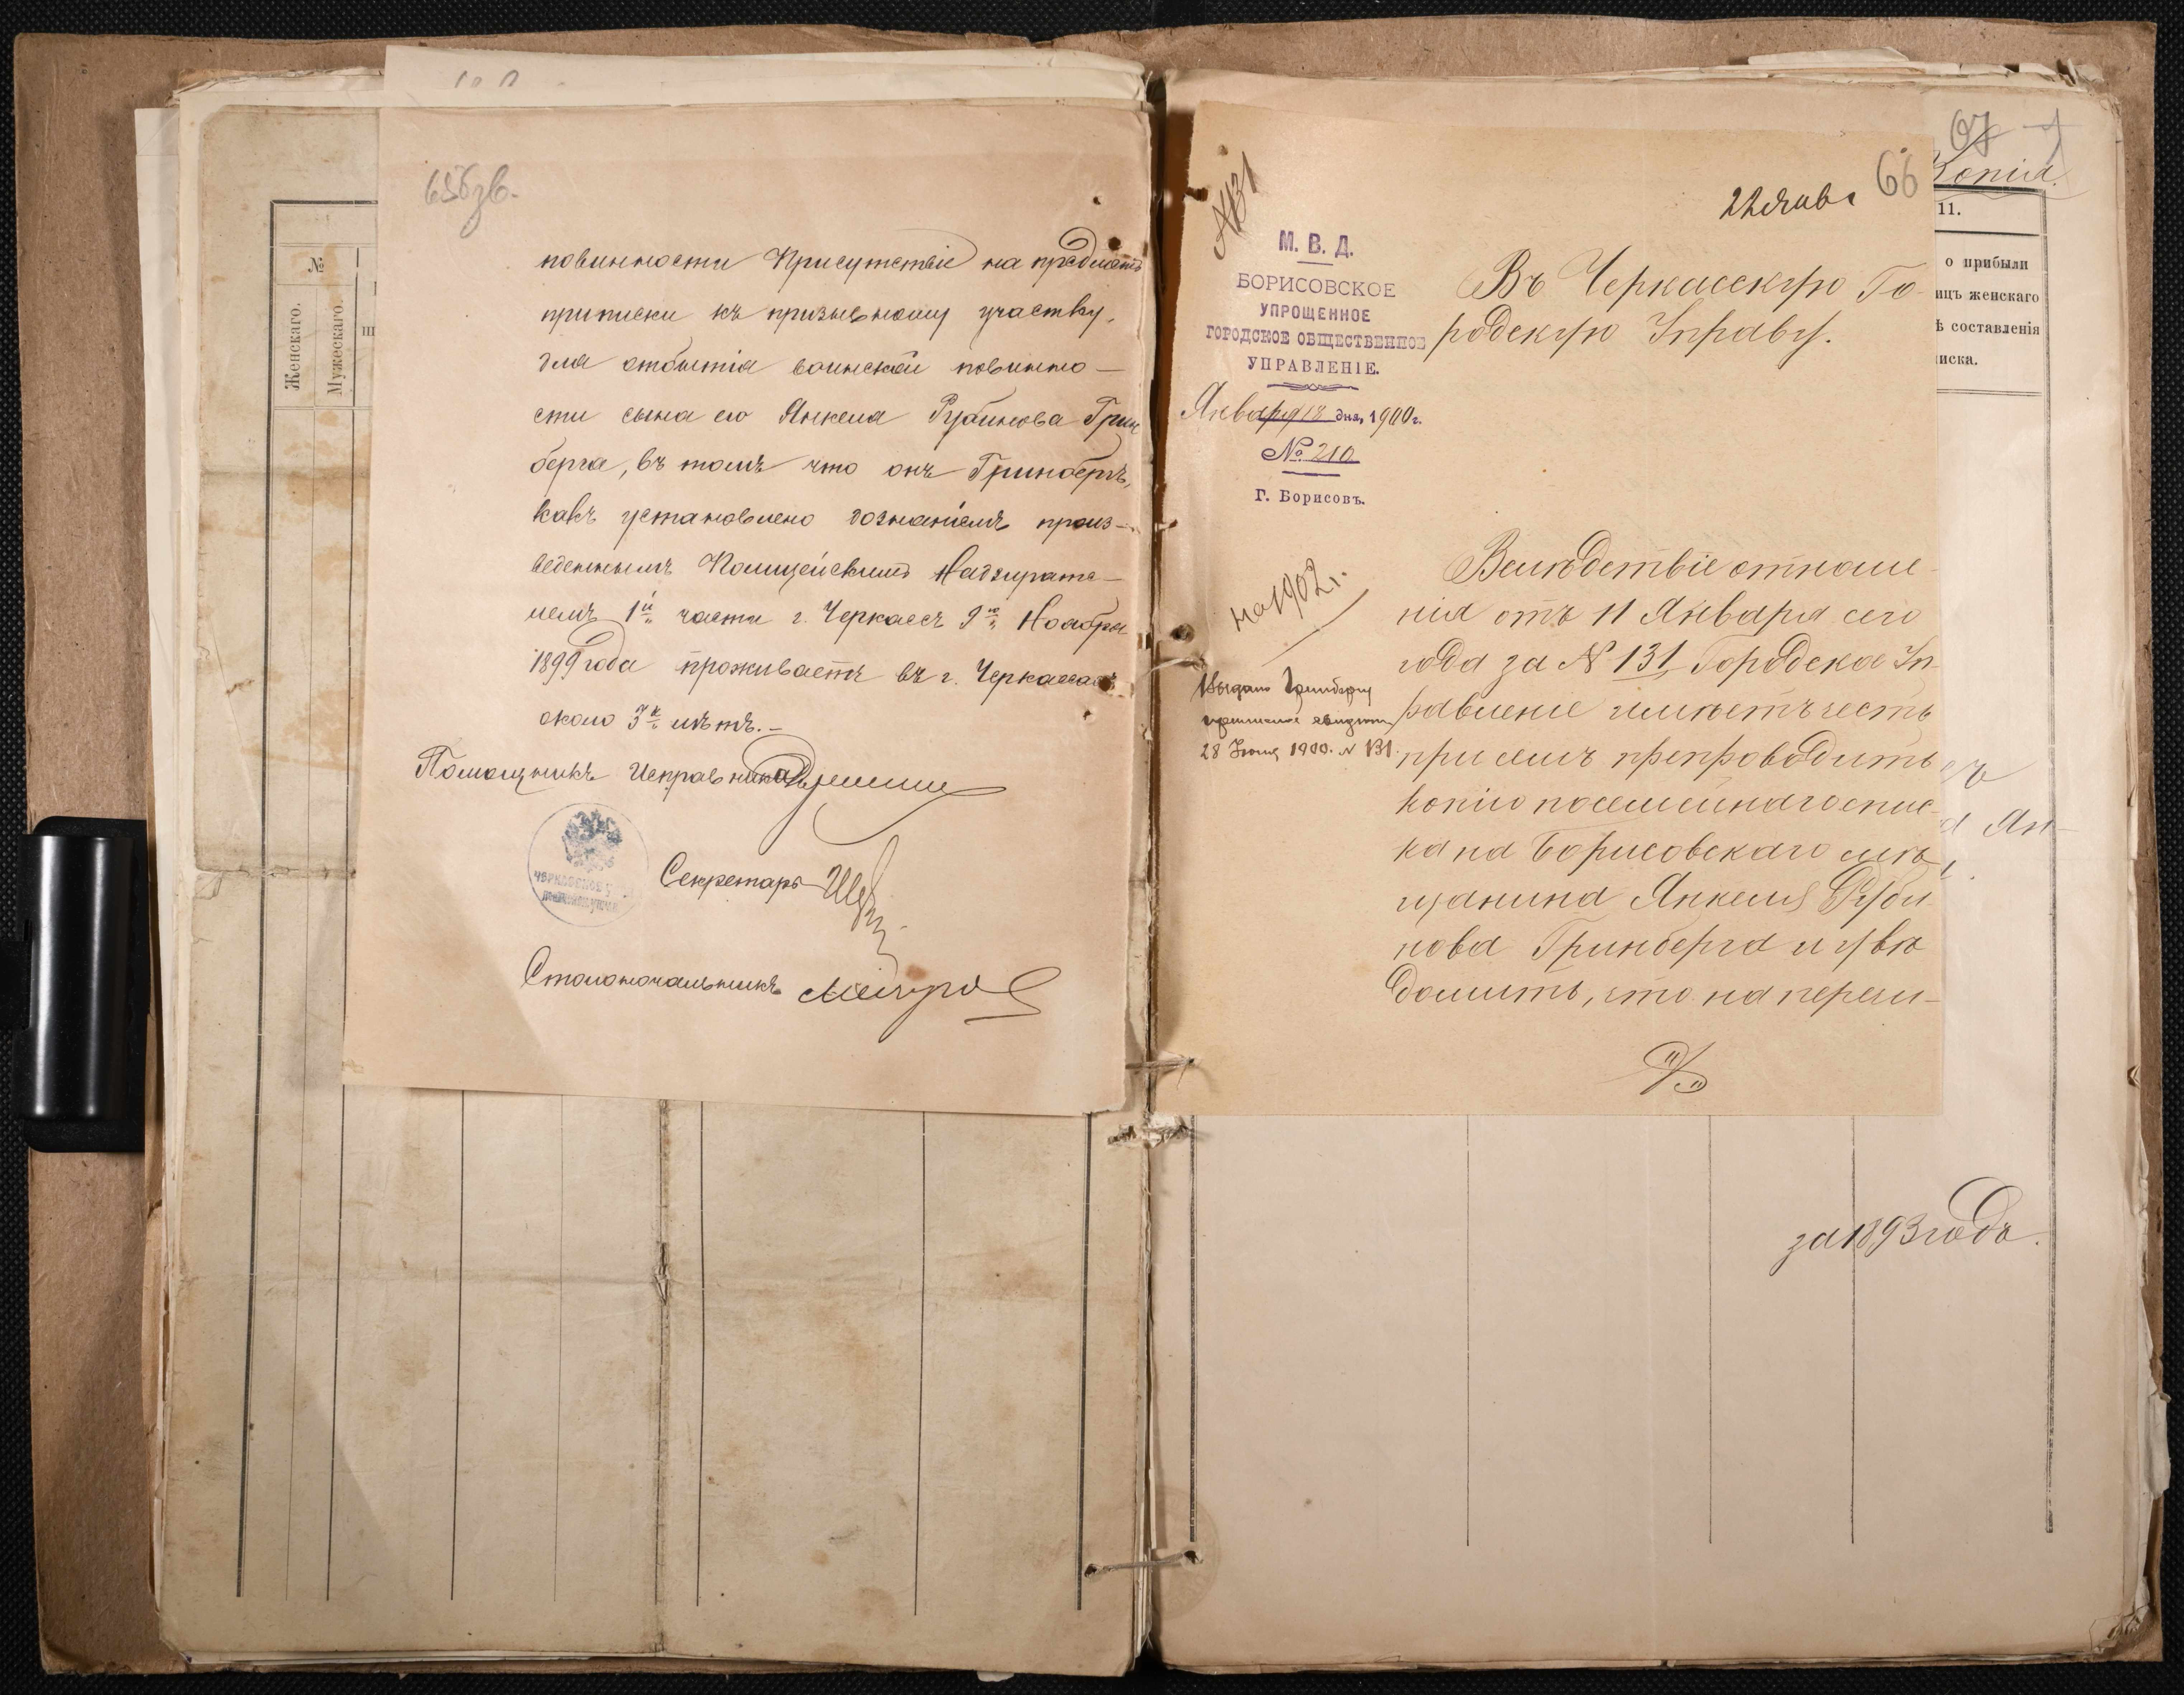 65б зв.
повинности Присутствіе на предметъ
приписки къ призывному участку,
для отбытія воинской повинно-
сти сына его Янкеля Рубинова Грин
берга, въ томъ что онъ Гринбергъ,
какъ установлено дознаніемъ произ-
веденнымъ Полицейскимъ Надзирате-
лемъ 1й части г. Черкассъ 9го Ноября
1899 года проживаетъ въ г. Черкассахъ
около 3хъ лѣтъ.-
Помощникъ Исправника
Секретарь
Столоначальникъ
№
Женскаго.
Мужескаго.
66
22 Янв
№131
М. В. Д.
БОРИСОВСКОЕ
УПРОЩЕННОЕ
ГОРОДСКОЕ ОБЩЕСТВЕННОЕ
УПРАВЛЕНІЕ.
Января 18 дня, 1900 г.
№ 210
Г. Борисовъ.
на 1902 г.
Выдано Гринбергу
28 Іюня 1900. № 131.
Въ Черкасскую Го-
родскую Управу.
Вслѣдствіе отноше-
нія отъ 11 Января сего
года за № 131, Городское Уп-
равленіе имѣетъ честь
при семъ препроводить
копію посемейнаго спис-
ка на Борисовскаго мѣ-
щанина Янкеля Руби
нова Гринберга и увѣ
домить, что на перечи-
67
Копія.
11.
о прибыли
ицъ женскаго
ѣ составленія
иска.
Ян-
за 1893 годъ.